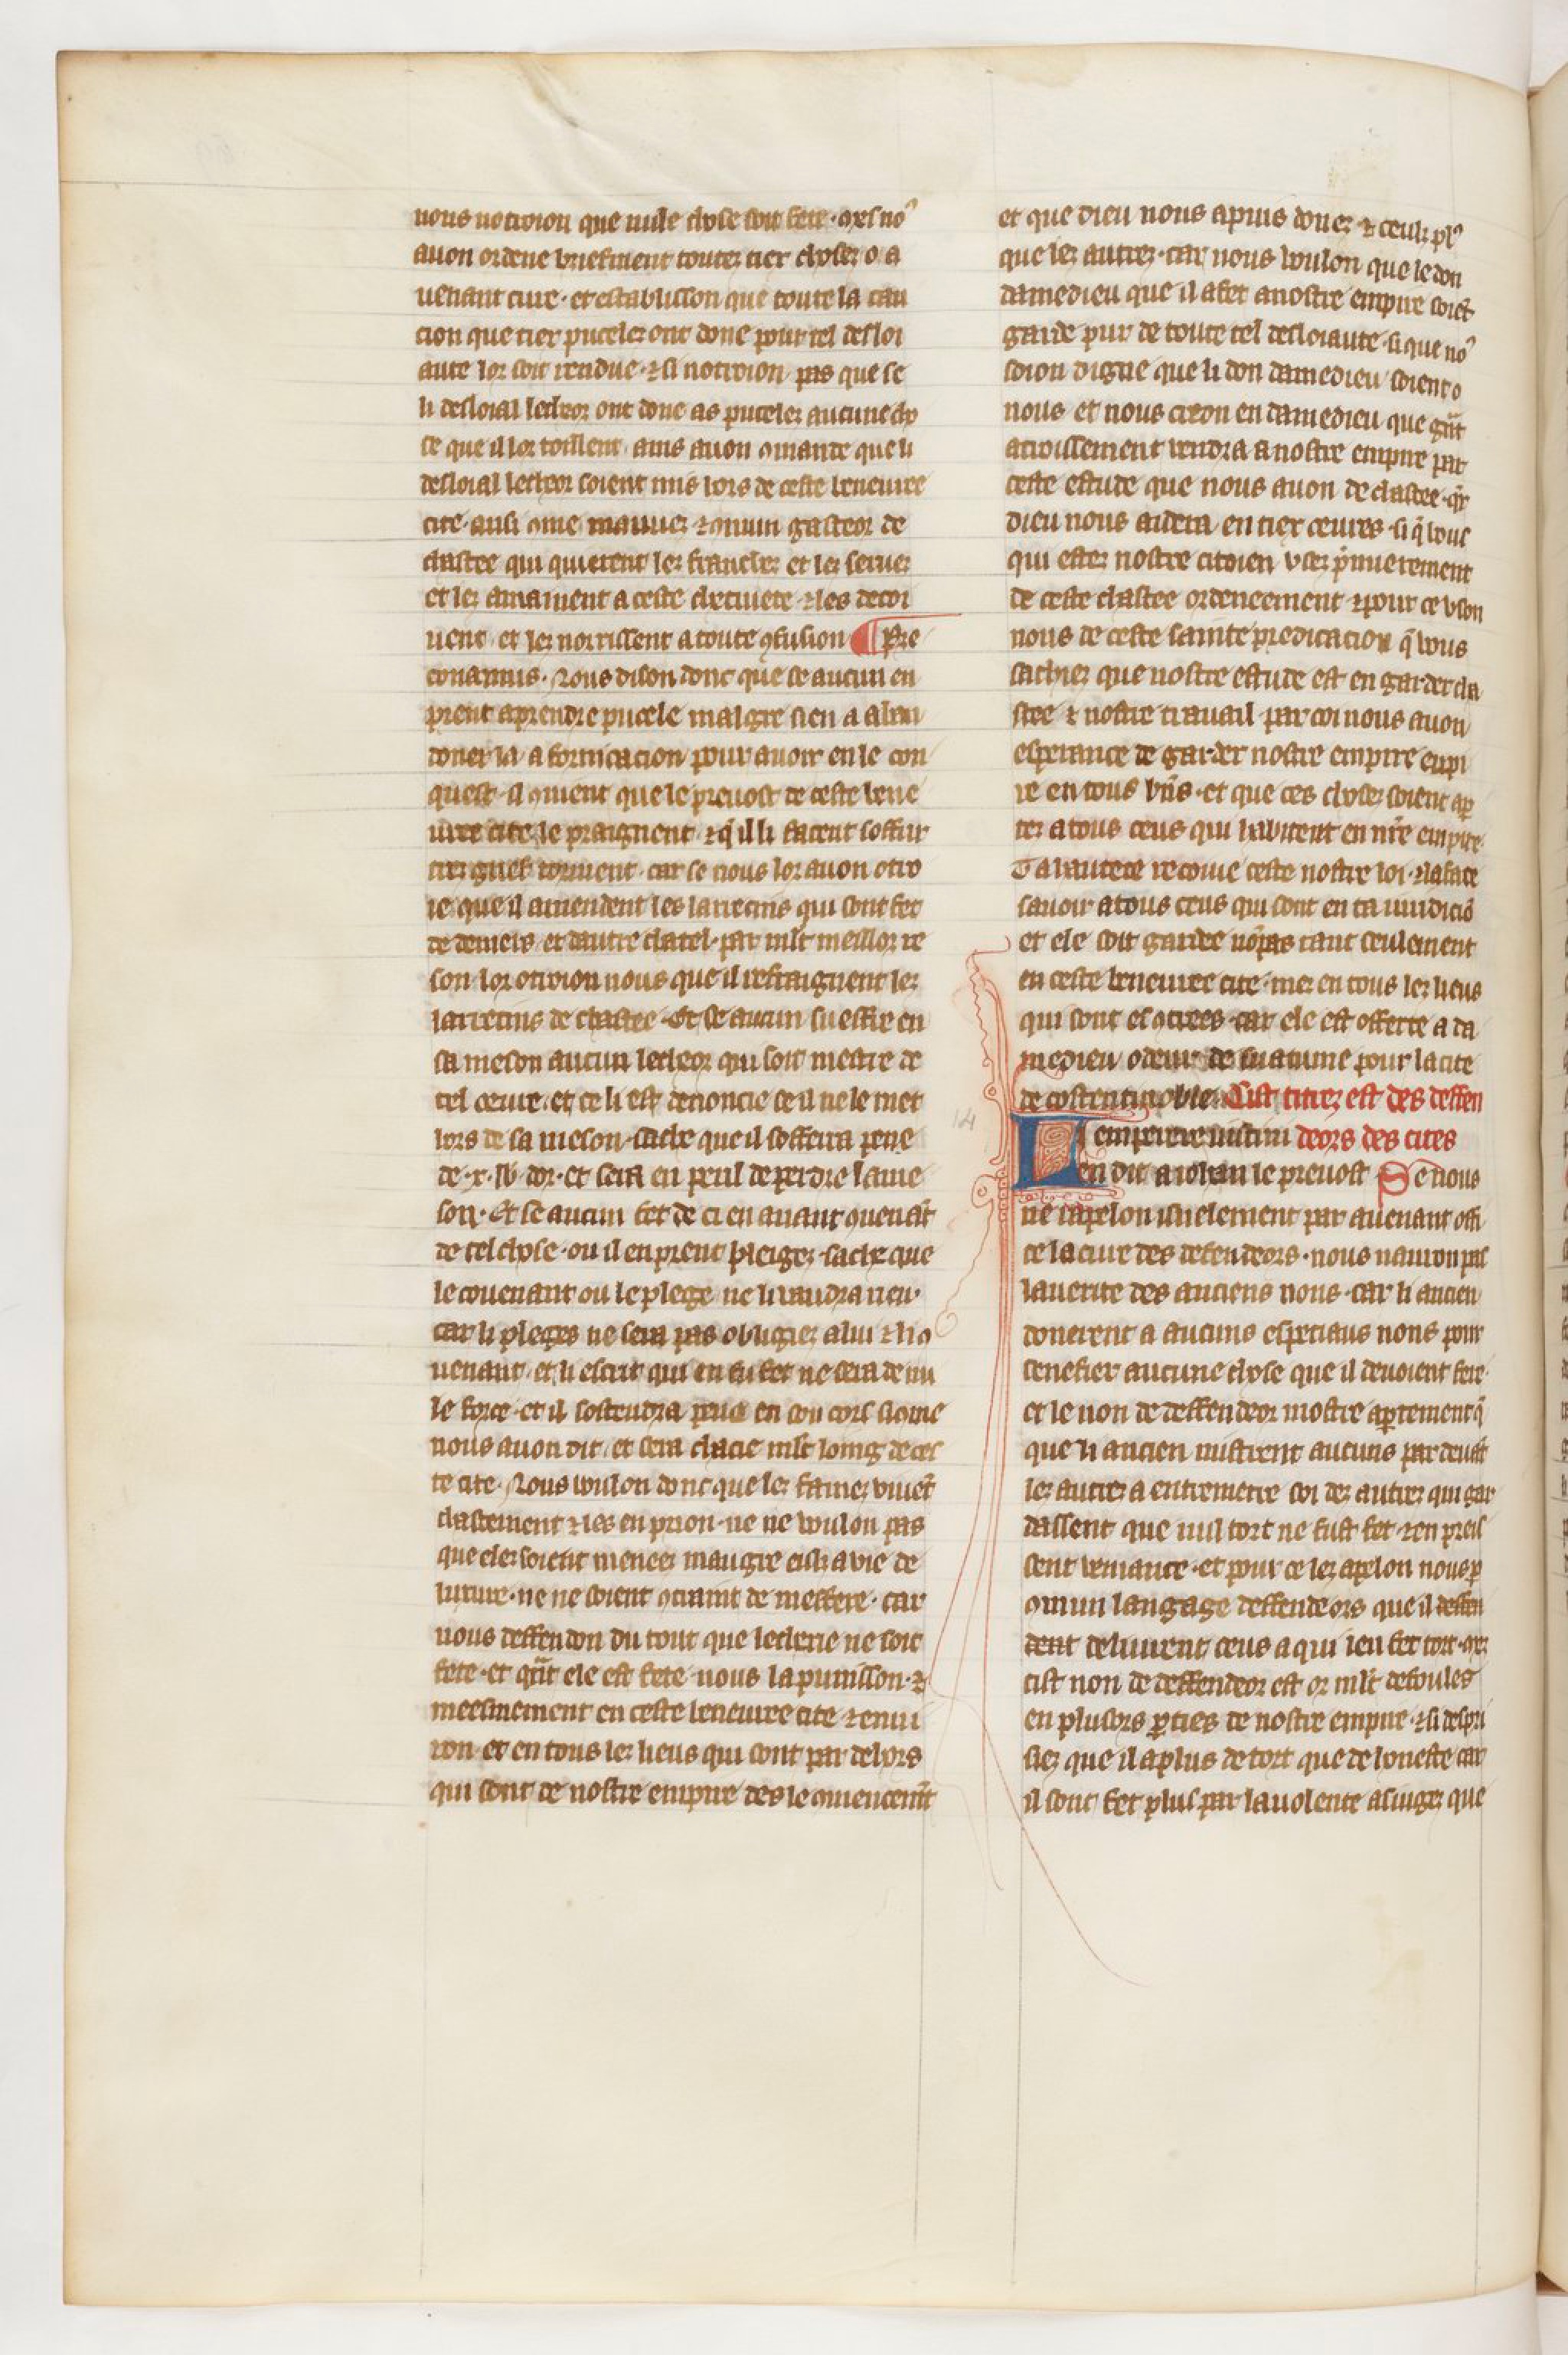 nous notroion que nulle chose soit fete. mes no⁹
auon ordene briefment toutez tier chosez o a
uenant cure. et establisson que toute la cau
cion que tier pucelez ont done pour tel desloi
aute lor soit rendue. ⁊ si notroion pas que se
li desloial lecheor ont done as pucelez aucune cho
se que il lor toillent. ains auon ꝯmande que li
desloial lecheor soient mis hors de ceste beneuree
cite. ausi ꝯme mauuez ⁊ ꝯmun gasteor de
chastee qui quierent lez franchez et lez seruez
et lez amainent a ceste chetiuete ⁊ les decoi
uent. et lez norrissent a toute ꝯfusion ¶ Pre
conamus. Nous dison donc que se aucun en
prent a prendre pucele malgre sien a aban
doner la a fornicacion pour auoir en le con
quest. il ꝯuient que le preuost de ceste bene
uree cite le praignent ⁊ q̃ il li facent soffrir
trez griez torment. car se nous lor auon otro
ie que il amendent les larrecins qui sont fet
de deniers et dautre chatel. par mlt meillor re
son lor otroion nous que il refraignent lez
larrecins de chastee. Et se aucun sueffre en
sa meson aucun lecheor qui soit mestre de
tel oeure. et ce li est denoncie se il ne le met
hors de sa meson. sache que il soffera pene
de .x. lb. dor. et sera en peril de perdre la me
son. Et se aucun fet de ci en auant ꝯuenãt
de tel chose. ou il en prent pleigez. sache que
le couenant ou le plege ne li vaudra rien.
car li pleges ne sera pas obligiez a lui ⁊ li ꝯ
uenant. et li escrit qui en fu fet ne sera de nu
le force. et il sostendra pene en son cors si ꝯme
nous auon dit. et sera chacie mlt loing de ces
te cite. Nous voulon donc que lez famez viuẽt
chastement ⁊ les en prion. ne ne voulon pas
que elez soient menees maugre eulz a vie de
luxure. ne ne soient ꝯtraint de meffere. car
nous deffendon du tout que lecherie ne soit
fete. et q̃nt ele est fete nous la punisson. ⁊
meesmement en ceste beneuree cite ⁊ enui
ron et en tous lez lieus qui sont par dehors
qui sont de nostre empire des le ꝯmencemẽt
et que dieu nous a puis donez ⁊ ceulz pl⁹
que lez autrez. car nous voulon que le don
damedieu que il a fet a nostre empire soiet
garde pur de toute tel desloiaute. si que no⁹
soion digne que li don damedieu soient o
nous et nous creon en damedieu que grãt
acroissement vendra a nostre empire par
ceste estude que nous auon de chastee. q̃r
dieu nous aidera en tier oeures. si q̃ vous
qui estez nostre citoien vsez p̃mierement
de ceste chastee ordeneement. ⁊ pour ce vson
nous de ceste sainte predicacion q̃ vous
sachiez que nostre estude est en garder cha
stee ⁊ nostre trauail par coi nous auon
esperance de garder nostre empire enpi
re en tous biẽs. et que ces chosez soient ap̱
tez a tous ceus qui habitent en nr̃e empire.
Ta hautece recoiue ceste nostre loi. ⁊ la face
sauoir a tous ceus qui sont en ta iuridiciõ
et ele soit gardee nõ pas tant seulement
en ceste beneuree cite. mez en tous lez lieus
qui sont es ꝯtrees. car ele est offerte a da
medieu odeur de suatume pour la cite
de costentinoble. Cist titrez est des deffen
L emperere iustini deors des cites
en dit a iohan le preuost Se nous
ne rapelon isnelement par auenant offi
ce la cure des defendeors. nous nauron pas
la uerite des anciens nons. car li ancien
donerent a aucuns especiaus nons pour
senefier aucune chose que il deuoient fere.
et le non de deffendeor mostre ap̱tement q̃
que li ancien mistrent aucuns par deuãt
lez autrez a entremetre soi dez autrez qui gar
dassent que nul tort ne fust fet. ⁊ en preis
sent veniance. et pour ce lez apelon nous p̱
ꝯmun langage deffendeors que il deffen
dent deliurent ceus a qui len fet tort. mez
cist non de deffendeor est or mlt defoules
en plusors p̱ties de nostre empire ⁊ si despri
siez que il a plus de tort que de honeste car
il sont fet plus par la uolente as iugez que